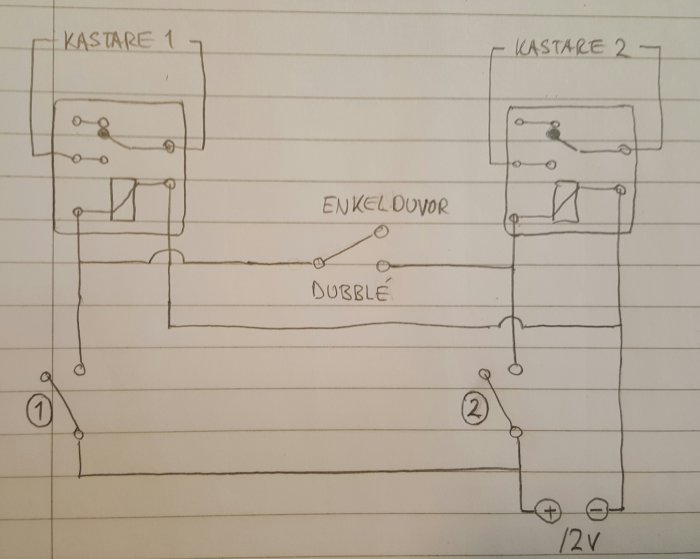 KASTARE 1
KASTARE 2
ENKELDUVOR
DUBBLÉ
1
2
+ −
12V